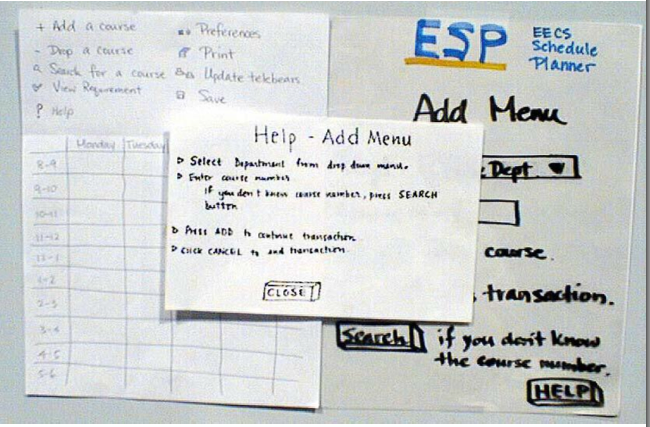 + Add a course
- Drop a course
Search for a course
View Requirement
? Help
Preferences
Print
Update telebears
Save
Monday Tuesday
8-9
9-10
10-11
11-12
12-1
1-2
2-3
3-4
4-5
5-6
Help - Add Menu
▷ Select Department from drop down menu.
▷ Enter course number
if you don't know course number, press SEARCH
button
▷ Press ADD to continue transaction
▷ Click CANCEL to end transaction.
CLOSE
ESP
EECS
Schedule
Planner
Add Menu
Dept ▼
course.
transaction.
Search if you don't know
the course number.
HELP